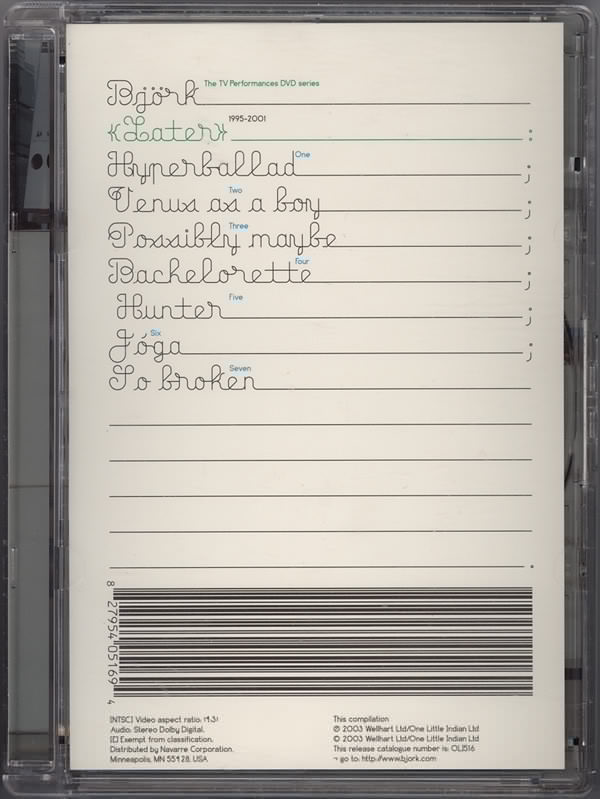 Björk The TV Performances DVD series
«Later» 1995-2001 :
Hyperballad One ;
Venus as a boy Two ;
Possibly maybe Three ;
Bachelorette Four ;
Hunter Five ;
Jóga Six ;
So broken Seven
.
8 27954 05169 4
[NTSC] Video aspect ratio: [4:3]
Audio: Stereo Dolby Digital.
[E] Exempt from classification.
Distributed by Navarre Corporation.
Minneapolis, MN 55428. USA
This compilation
℗ 2003 Wellhart Ltd/One Little Indian Ltd
© 2003 Wellhart Ltd/One Little Indian Ltd
This release catalogue number is: OLI516
¬ go to: http://www.bjork.com